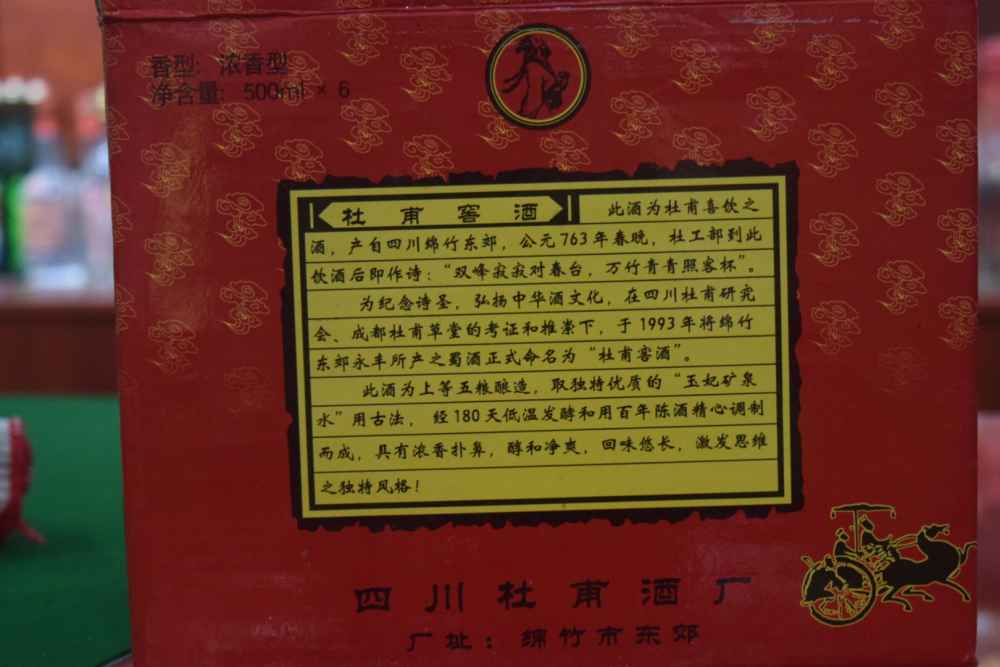 香型：浓香型
净含量：500ml × 6
杜甫窖酒 此酒为杜甫喜饮之
酒，产自四川绵竹东郊，公元763年春晚，杜工部到此
饮酒后即作诗：“双峰寂寂对春台，万竹青青照客杯”。
为纪念诗圣，弘扬中华酒文化，在四川杜甫研究
会、成都杜甫草堂的考证和推崇下，于1993年将绵竹
东郊永丰所产之蜀酒正式命名为“杜甫窖酒”。
此酒为上等五粮酿造，取独特优质的“玉妃矿泉
水”用古法，经180天低温发酵和用百年陈酒精心调制
而成，具有浓香扑鼻，醇和净爽，回味悠长，激发思维
之独特风格！
四川杜甫酒厂
厂址：绵竹市东郊